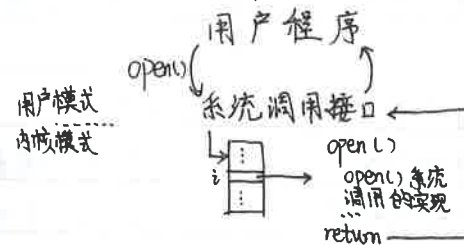 用户程序
open()
系统调用接口
用户模式
内核模式
i
open()
open()系统
调用的实现
...
return